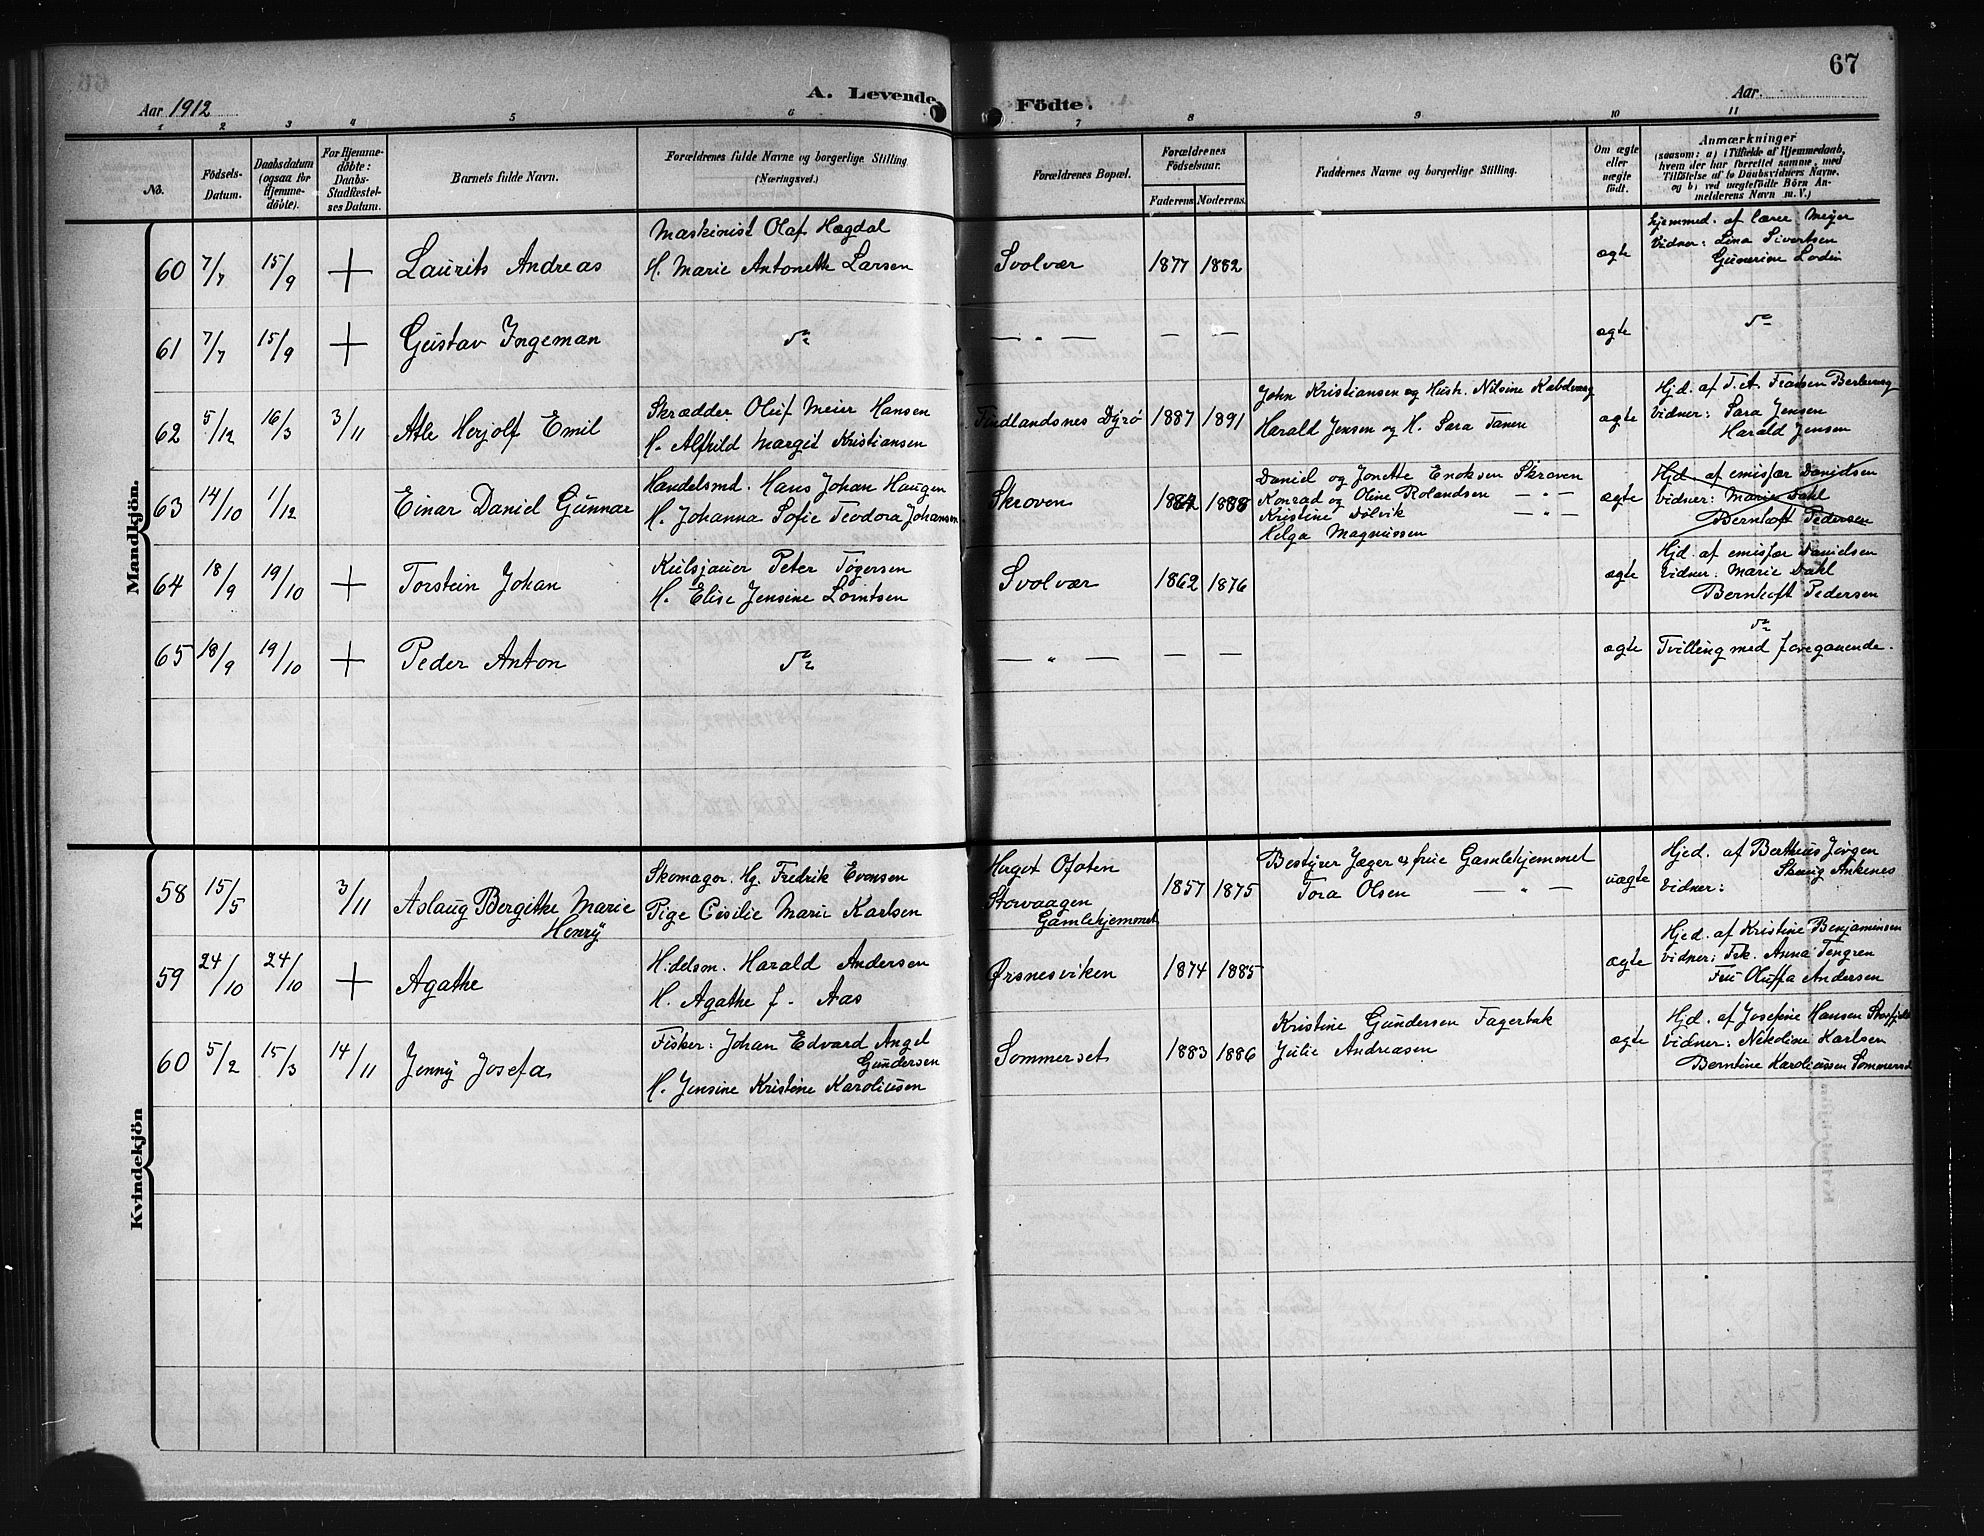 67
Aar 1912
A. Levende Födte.
Aar.
1 2 3 4 5 6 7 8 9 10 11
No.
Födsels-Datum.
Daabsdatum (ogsaa for Hjemme-döbte).
For Hjemme-döbte: Daabs-Stadfæstel-ses Datum.
Barnets fulde Navn.
Forældrenes fulde Navne og borgerlige Stilling. (Næringsvei.)
Forældrenes Bopæl.
Forældrenes Födselsaar.
Faderens Moderens.
Faddernes Navne og borgerlige Stilling.
Om ægte eller uægte födt.
Anmærkninger
(saasom: a) i Tilfælde af Hjemmedaab, hvem der har forrettet samme, med Tilföielse af to Daabsvidners Navne, og b) ved uægtefödte Börn An-melderens Navn m. V.)
Mandkjön.
60 7/7 15/9 + Laurits Andreas
Maskinist Olaf Hægdal
H. Marie Antonette Larsen
Svolvær 1877 1882 ægte
hjemmed. af lærer Meyer
Vidner: Lina Sivertsen
Gunerine Lodin
61 7/7 15/9 + Gustav Ingeman do — " — — — ægte do
62 5/12 16/3 3/11 Atle Herjolf Emil
Skrædder Oluf Meier Hansen
H. Alfhild Margit Kristiansen
Tindlandsnes Dyrø 1887 1891
John Kristiansen og Hustr. Nilsine Kabelvaag
Harald Jensen og H. Sara Tanem
ægte
Hjd. af T. A. Fransen
Vidner: Sara Jensen
Harald Jensen
63 14/10 1/12 Einar Daniel Gunnar
Handelsmd. Hans Johan Haugen
H. Johanna Sofie Teodora Johansen
Skroven 1882 1888
Daniel og Jonette Enoksen Skroven
Konrad og Oline Rolandsen — " —
Kristine Dølvik — " —
Helga Magnussen
ægte
Hjd. af emisfær Danielsen
Vidner: Marie Dahl
Bernhoft Pedersen
64 18/9 19/10 + Torstein Johan
Kulsjauer Peter Tøgersen
H. Elise Jensine Lorntsen
Svolvær 1862 1876 ægte
Hjd. af emisfær Danielsen
Vidner: Marie Dahl
Bernhoft Pedersen
65 18/9 19/10 + Peder Anton do — " — — — ægte
do
Tvilling med foregaaende.
Kvindekjön
58 15/5 3/11 Aslaug Bergithe Marie
Henny
Skomager. Hg. Fredrik Evensen
Pige Cesilie Marie Karlsen
Ofoten
Storvaagen
Gamlehjemmet
1857 1875
Bestyrer Jæger og frue Gamlehjemmet
Tora Olsen — " —
uægte
Hjed. af Bertheus Jørgen
Ankenes
Vidner:
59 24/10 24/10 + Agathe
H:delsm. Harald Andersen
H. Agathe f. Aas
Ørsnesviken 1874 1885 ægte
Hjed. af Kristine Benjaminsen
Vidner: Frk. Anna Tengren
Fru Oluffa Andersen
60 5/2 15/3 14/11 Jenny Josefa
Fisker: Johan Edvard Angel
Gundersen
H. Jensine Kristine Karoliusen
Sommerset 1883 1886
Kristine Gundersen Fagerbak
Julie Andreasen
ægte
Hjd. af Josefine Hansen
Vidner: Nikoline Karlsen
Berntine Karoliussen Sommerset